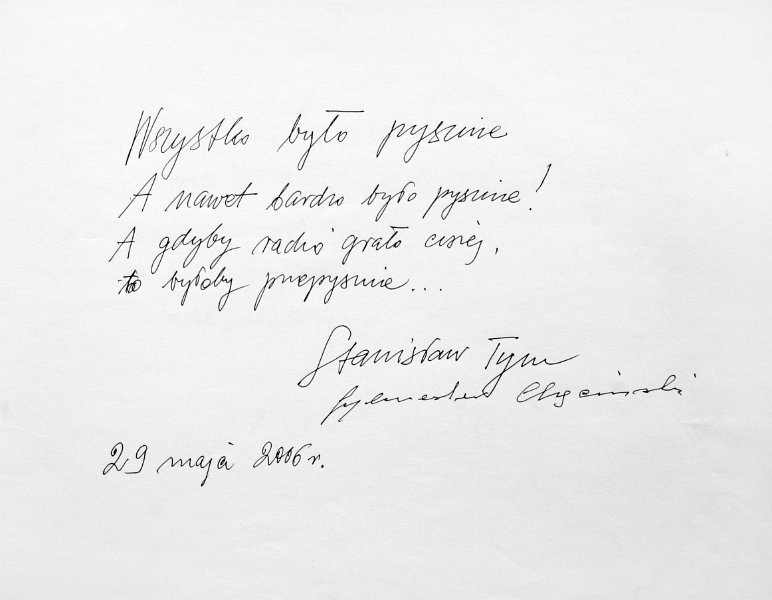 Wszystko było pyszne
A nawet bardzo było pyszne!
A gdyby radio grało ciszej,
to byłoby przepysznie...
Stanisław Tym
Sylwester Chęciński
29 maja 2006 r.